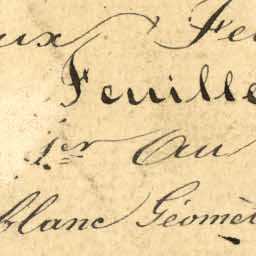 ux Fe
Feuille
1er Au
Blanc Géomèt